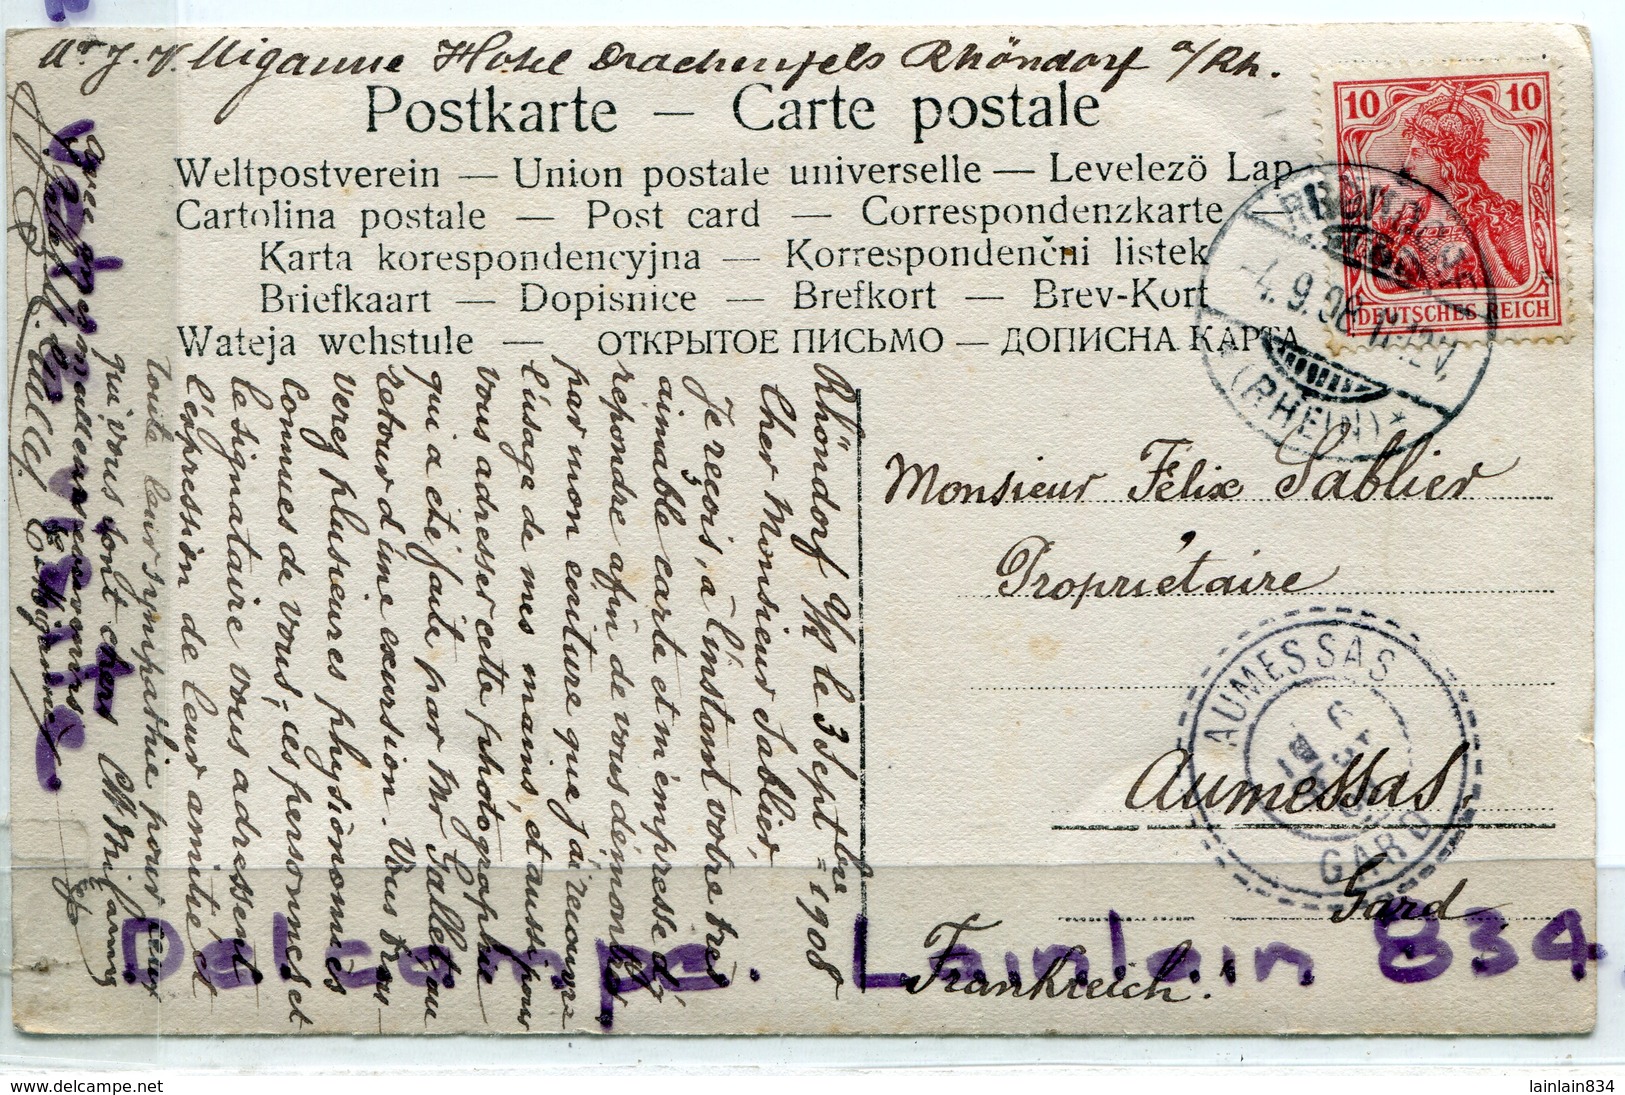 Mr J. V. Miganne Hotel Drachenfels Rhöndorf a/Rh.
Postkarte — Carte postale
Weltpostverein — Union postale universelle — Levelezö Lap
Cartolina postale — Post card — Correspondenzkarte —
Karta korespondencyjna — Korrespondenčni listek
Briefkaart — Dopisnice — Brefkort — Brev-Kort
Wateja wchstule — ОТКРЫТОЕ ПИСЬМО — ДОПИСНА КАРТА
10 10
DEUTSCHES REICH
4.9.08
(RHEIN)
Monsieur Félix Sablier
Propriétaire
Aumessas
Gard
Frankreich.
AUMESSAS
6
GARD
Rhöndorf le 3 Septbre 1908
Cher Monsieur Sablier,
Je reçois, à l'instant votre très
aimable carte et m'empresse d'y
répondre afin de vous démontrer
par mon écriture que j'ai recouvré
l'usage de mes mains, et aussi pour
vous adresser cette photographie
qui a été faite par Mr Gallet au
retour d'une excursion. Vous trou-
verez plusieures physionomies
connues de vous; ces personnes et
le signataire vous adressent
l'expression de leur amitié et
toute leur sympathie pour ceux
qui vous sont chers
Delcampe. Lainlain 834.
lainlain834